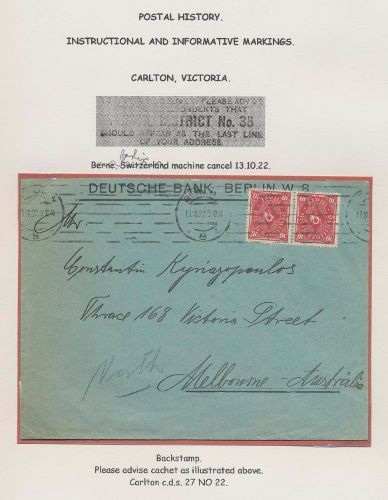 POSTAL HISTORY.
INSTRUCTIONAL AND INFORMATIVE MARKINGS.
CARLTON, VICTORIA.
PLEASE ADVISE
DENTS THAT
DISTRICT No. 38
SHOULD APPEAR AS THE LAST LINE
OF YOUR ADDRESS.
Berlin
Berne, Switzerland machine cancel 13.10.22.
DEUTSCHE BANK, BERLIN W. 8
Constantin Kyriazopoulos
Thrace 168 Victoria Street
North
Melbourne - Australia
Backstamp.
Please advise cachet as illustrated above.
Carlton c.d.s. 27 NO 22.